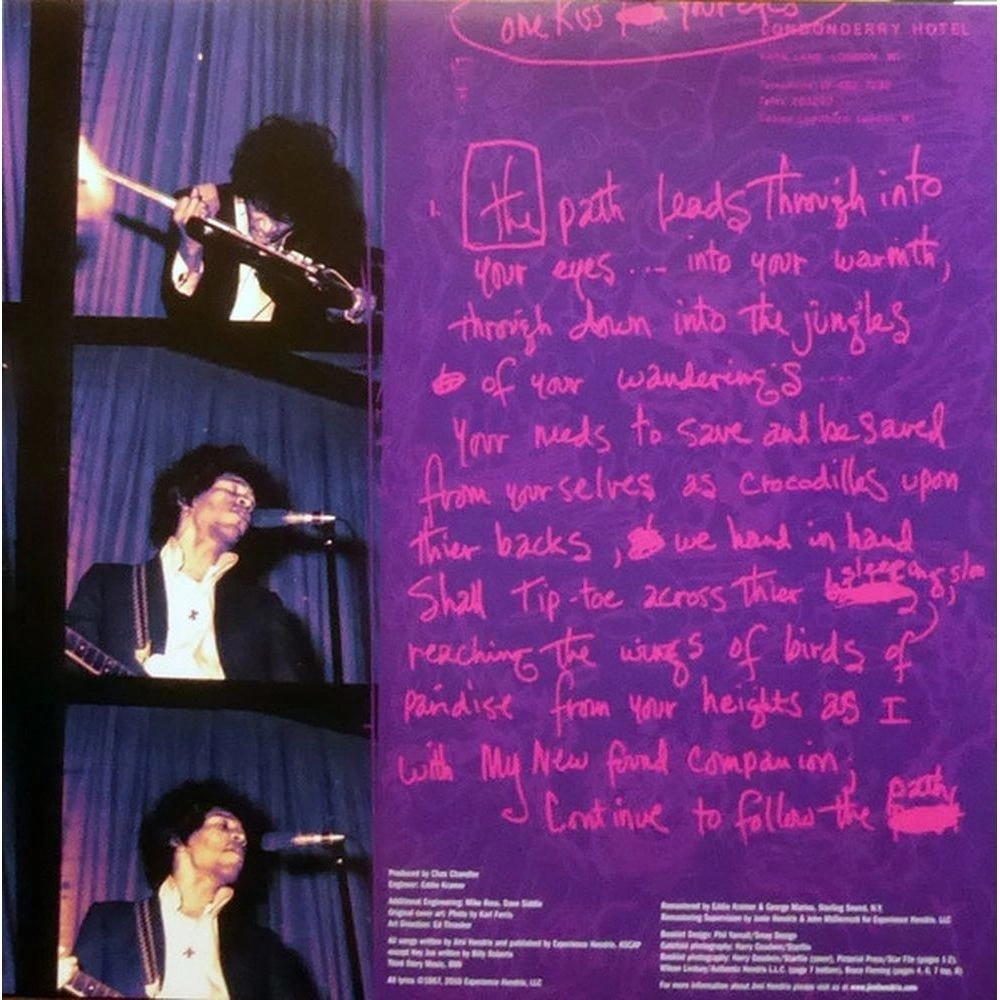 one kiss your eyes
LONDONDERRY HOTEL
PARK LANE LONDON W1
1. the path leads through into
your eyes .... into your warmth,
through down into the jungles
of your wandering's ....
Your needs to save and be saved
from yourselves as crocadilles upon
thier backs , we hand in hand
Shall Tip-toe across thier
sleeping
reaching the wings of birds of
paridise from your heights as I
with My New found companion,
Continue to follow the path
Produced by Chas Chandler
Engineer: Eddie Kramer
Additional Engineering: Mike Ross, Dave Siddle
Original cover art: Photo by Karl Ferris
Art Direction: Ed Thrasher
All songs written by Jimi Hendrix and published by Experience Hendrix, ASCAP
except Hey Joe written by Billy Roberts
Third Story Music, BMI
All lyrics ©1967, 2010 Experience Hendrix, LLC
Remastered by Eddie Kramer & George Marino, Sterling Sound, NY
Remastering Supervision by Janie Hendrix & John McDermott for Experience Hendrix, LLC
Booklet Design: Phil Yarnall/Smay Design
Gatefold photography: Harry Goodwin/Starfile
Booklet photography: Harry Goodwin/Starfile (cover), Pictorial Press/Star File (pages 1-2),
Wilson Lindsey/Authentic Hendrix L.L.C. (page 7 bottom), Bruce Fleming (pages 4, 6, 7 top, 8)
For more information about Jimi Hendrix please visit us at www.jimihendrix.com